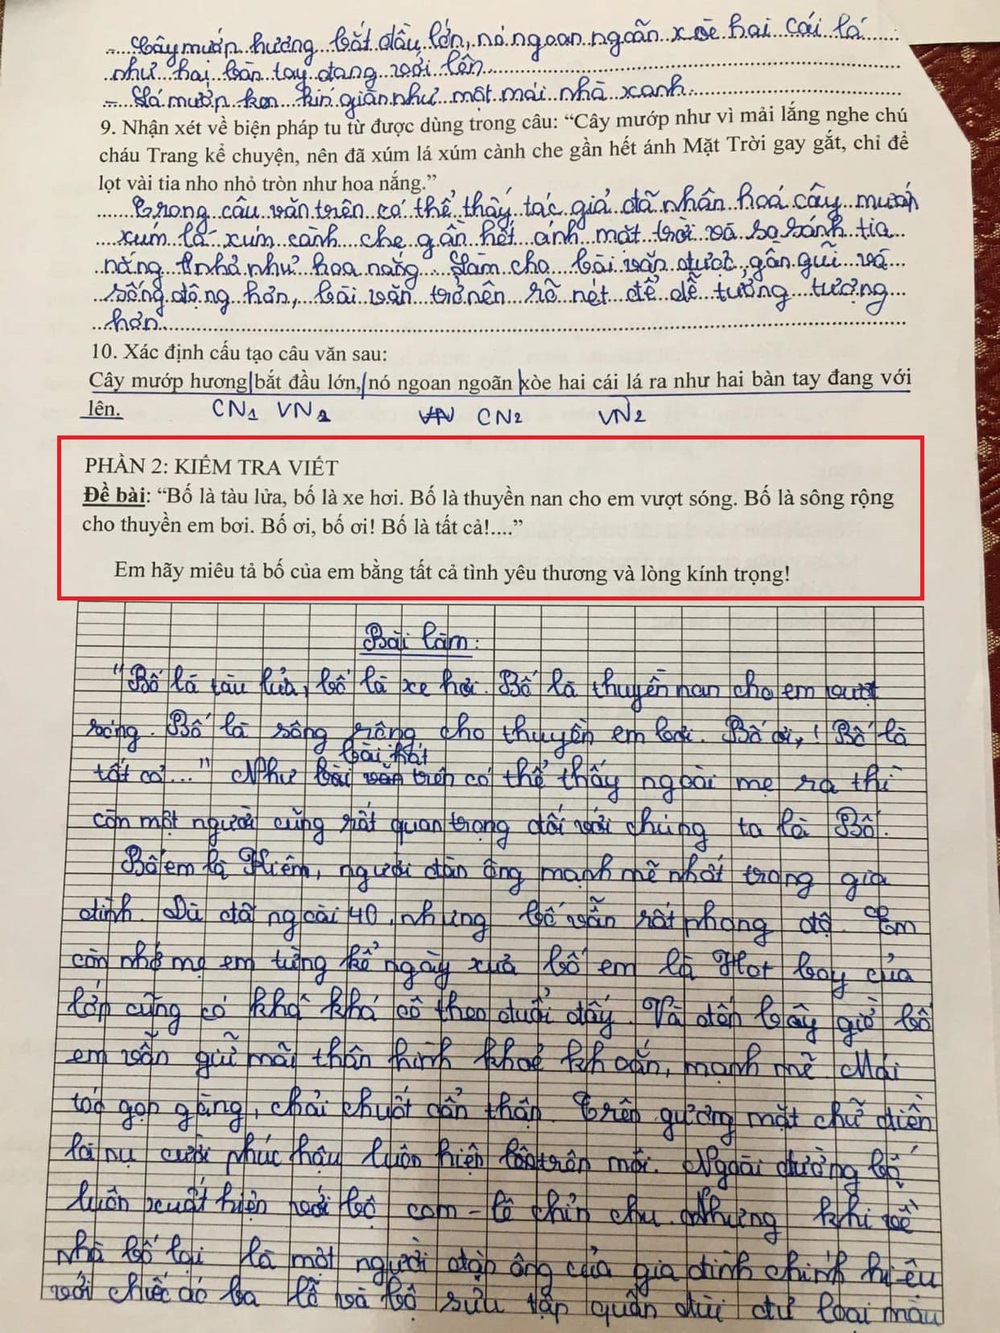 Cây mướp hương bắt đầu lớn, nó ngoan ngoãn xòe hai cái lá
như hai bàn tay đang với lên
- Lá mướp kín giàn như một mái nhà xanh.
9. Nhận xét về biện pháp tu từ được dùng trong câu: “Cây mướp như vì mải lắng nghe chú
cháu Trang kể chuyện, nên đã xúm lá xúm cành che gần hết ánh Mặt Trời gay gắt, chỉ để
lọt vài tia nho nhỏ tròn như hoa nắng.”
Trong câu văn trên có thể thấy, tác giả đã nhân hoá cây mướp
xúm lá xúm cành che gần hết ánh mặt trời và so sánh tia
nắng nhỏ như hoa nắng làm cho bài văn được gần gũi và
sống động hơn, bài văn trở nên rõ nét để dễ tưởng tượng
hơn.
10. Xác định cấu tạo câu văn sau:
Cây mướp hương|bắt đầu lớn,/nó ngoan ngoãn|xòe hai cái lá ra như hai bàn tay đang với
lên.
CN1 VN1 VN CN2 VN2
PHẦN 2: KIỂM TRA VIẾT
Đề bài: “Bố là tàu lửa, bố là xe hơi. Bố là thuyền nan cho em vượt sóng. Bố là sông rộng
cho thuyền em bơi. Bố ơi, bố ơi! Bố là tất cả!....”
Em hãy miêu tả bố của em bằng tất cả tình yêu thương và lòng kính trọng!
Bài làm:
“Bố là tàu lửa, bố là xe hơi. Bố là thuyền nan cho em vượt
sóng. Bố là sông rộng cho thuyền em bơi. Bố ơi,! Bố là
bài hát
tất cả...” Như bài văn trên có thể thấy ngoài mẹ ra thì
còn một người cũng rất quan trọng đối với chúng ta là Bố.
Bố em là Hiêm, người đàn ông mạnh mẽ nhất trong gia
đình. Dù đã ngoài 40, nhưng bố vẫn rất phong độ. Em
còn nhớ mẹ em từng kể ngày xưa bố em là Hot boy của
lớp cũng có khá cô theo đuổi đấy. Và đến bây giờ bố
em vẫn giữ mãi thân hình khoẻ khoắn, mạnh mẽ. Mái
tóc gọn gàng, chải chuốt cẩn thận. Trên gương mặt chữ điền
là nụ cười phúc hậu luôn hiện trên môi. Ngoài đường bố
luôn xuất hiện với bộ com - lê chỉn chu. Nhưng khi về
nhà bố lại là một người đàn ông của gia đình chính hiệu
với chiếc áo ba lỗ và bộ sưu tập quần đùi đủ loại màu